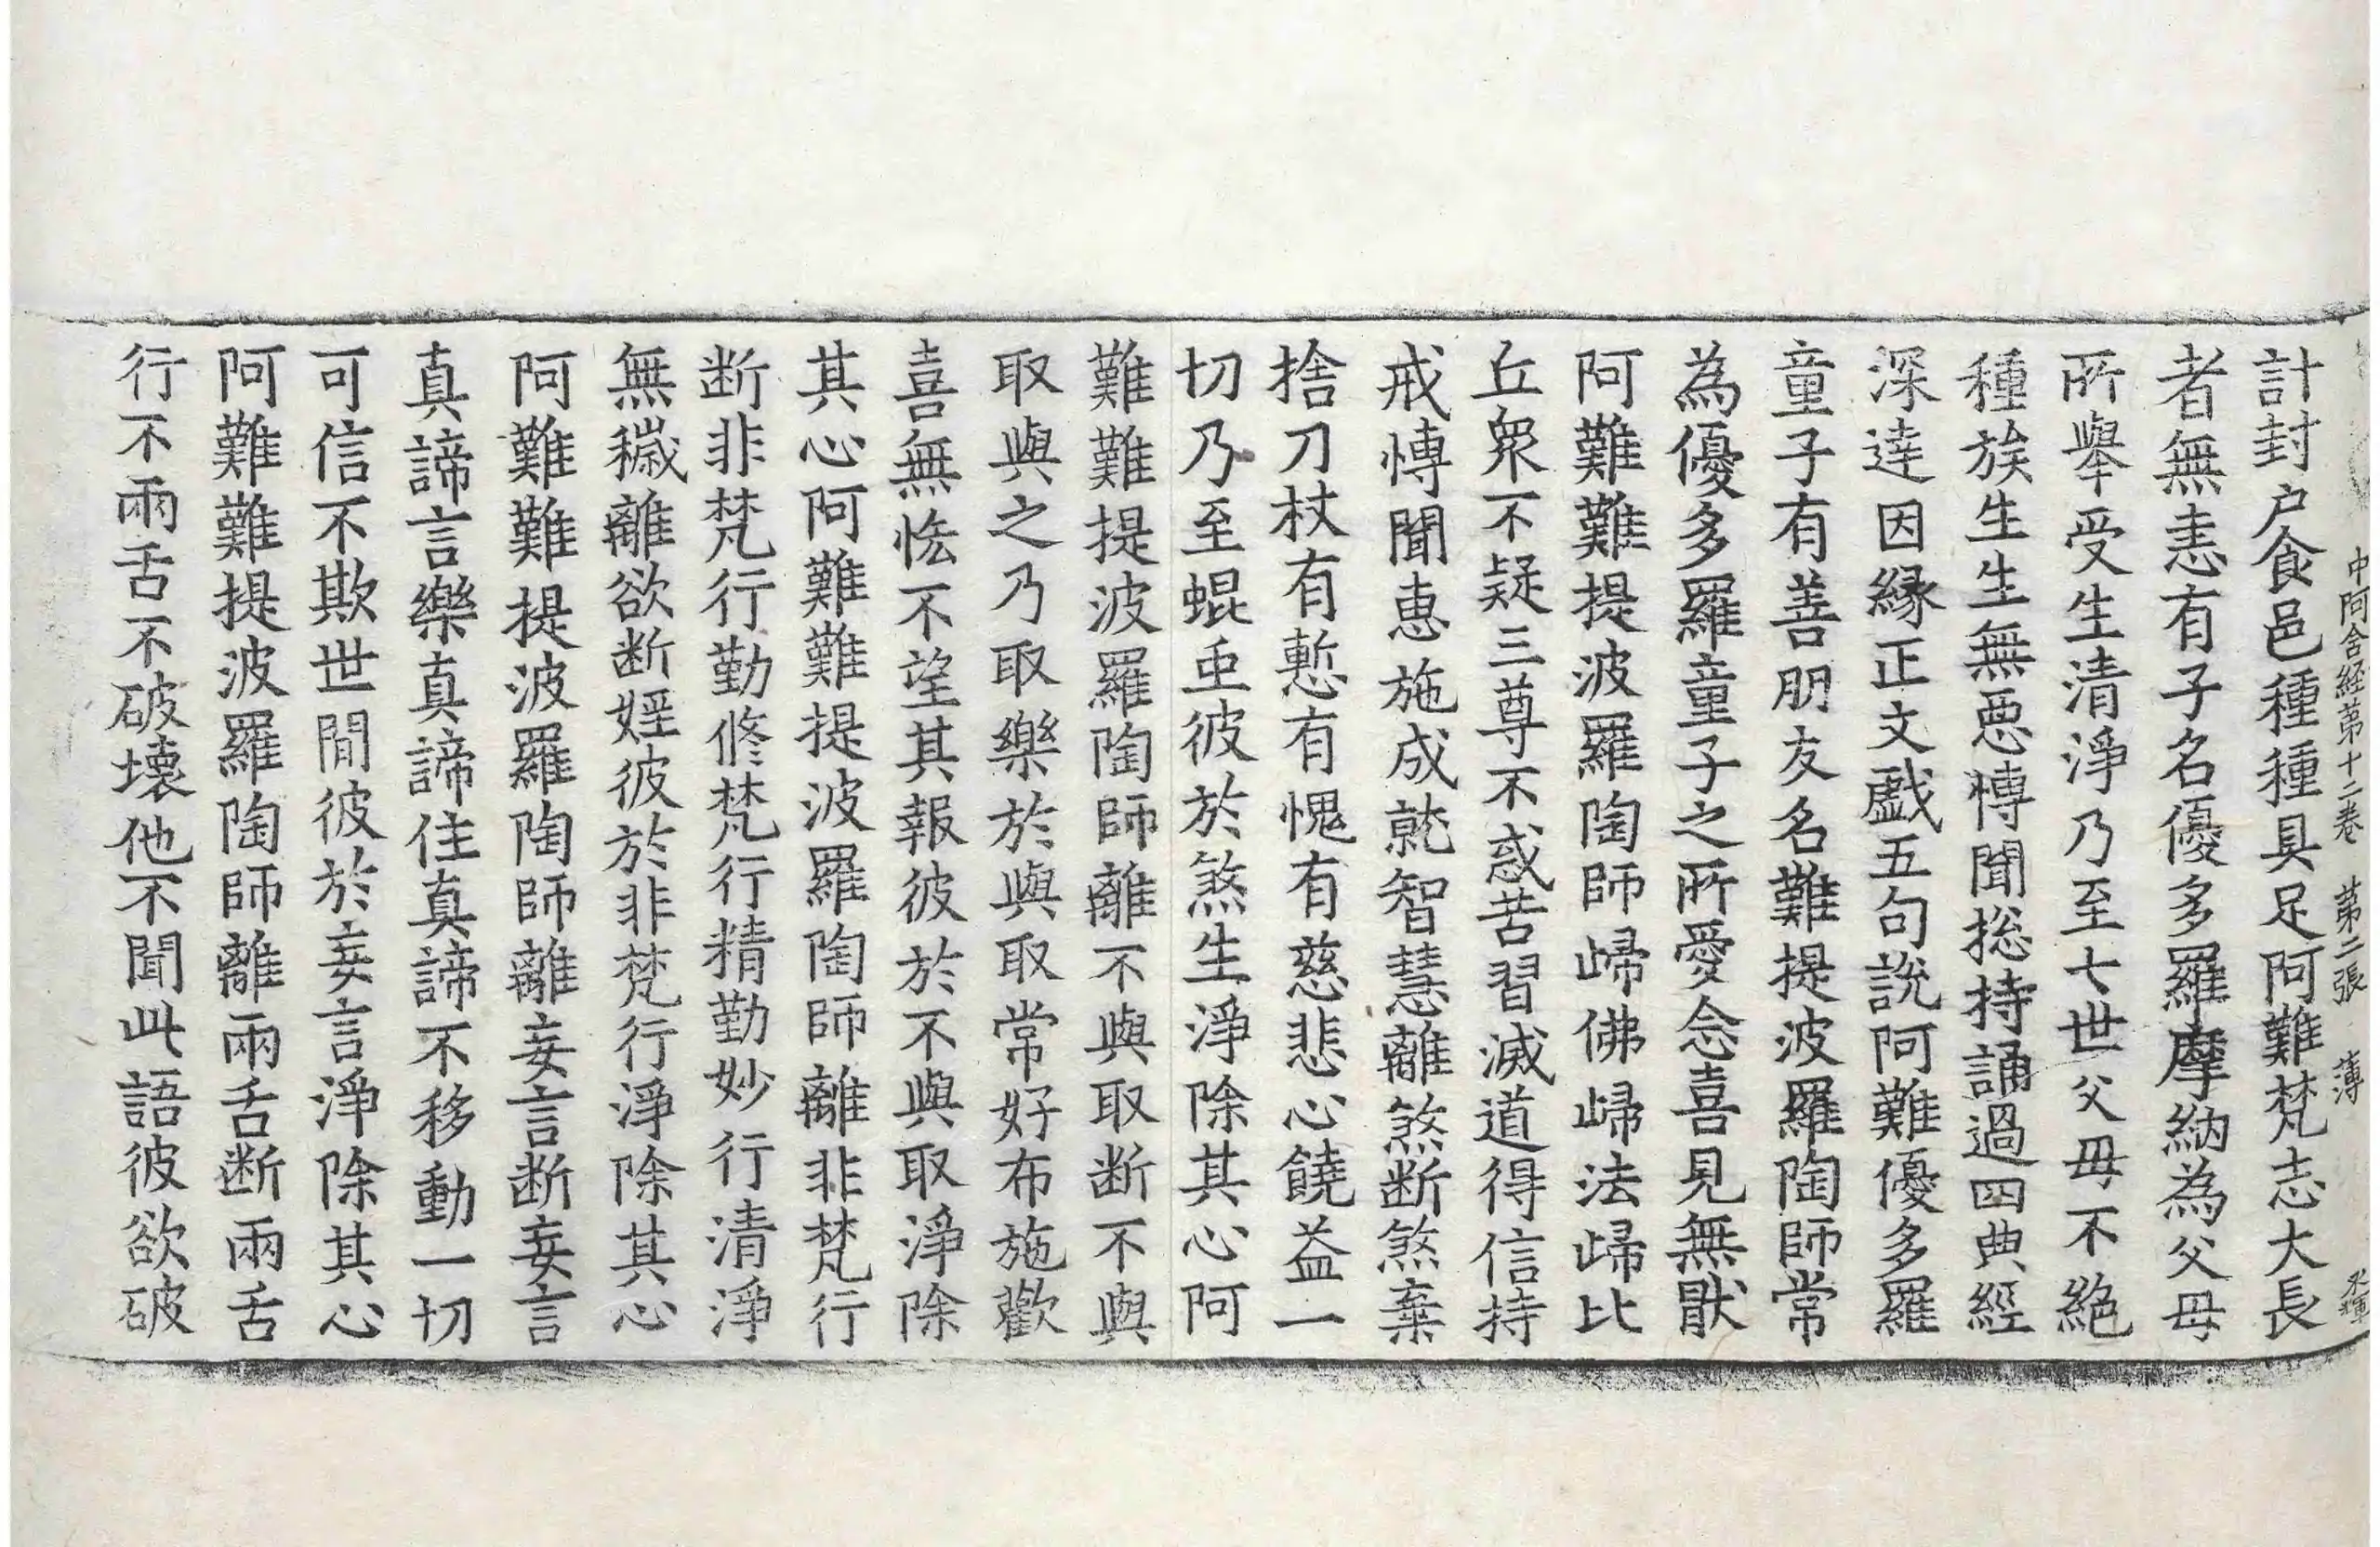 中阿含経第十二卷 第二張 薄
計封户食邑種種具足阿難梵志大長
者無恚有子名優多羅摩納為父母
所舉受生清淨乃至七世父母不絶
種族生生無惡博聞揔持誦過四典經
深逹因縁正文戲五句説阿難優多羅
童子有善朋友名難提波羅陶師常
為優多羅童子之所愛念喜見無猒
阿難難提波羅陶師歸佛歸法歸比
丘衆不疑三尊不惑苦習滅道得信持
戒博聞惠施成就智慧離煞断煞棄
捨刀杖有慙有愧有慈悲心饒益一
切乃至蜫虫彼於煞生淨除其心阿
難難提波羅陶師離不與取断不與
取與之乃取樂於與取常好布施歡
喜無恡不望其報彼於不與取淨除
其心阿難難提波羅陶師離非梵行
断非梵行勤修梵行精勤妙行清淨
無穢離欲断婬彼於非梵行淨除其心
阿難難提波羅陶師離妄言断妄言
真諦言樂真諦住真諦不移動一切
可信不欺世間彼於妄言淨除其心
阿難難提波羅陶師離兩舌断兩舌
行不兩舌不破壊他不聞此語彼欲破